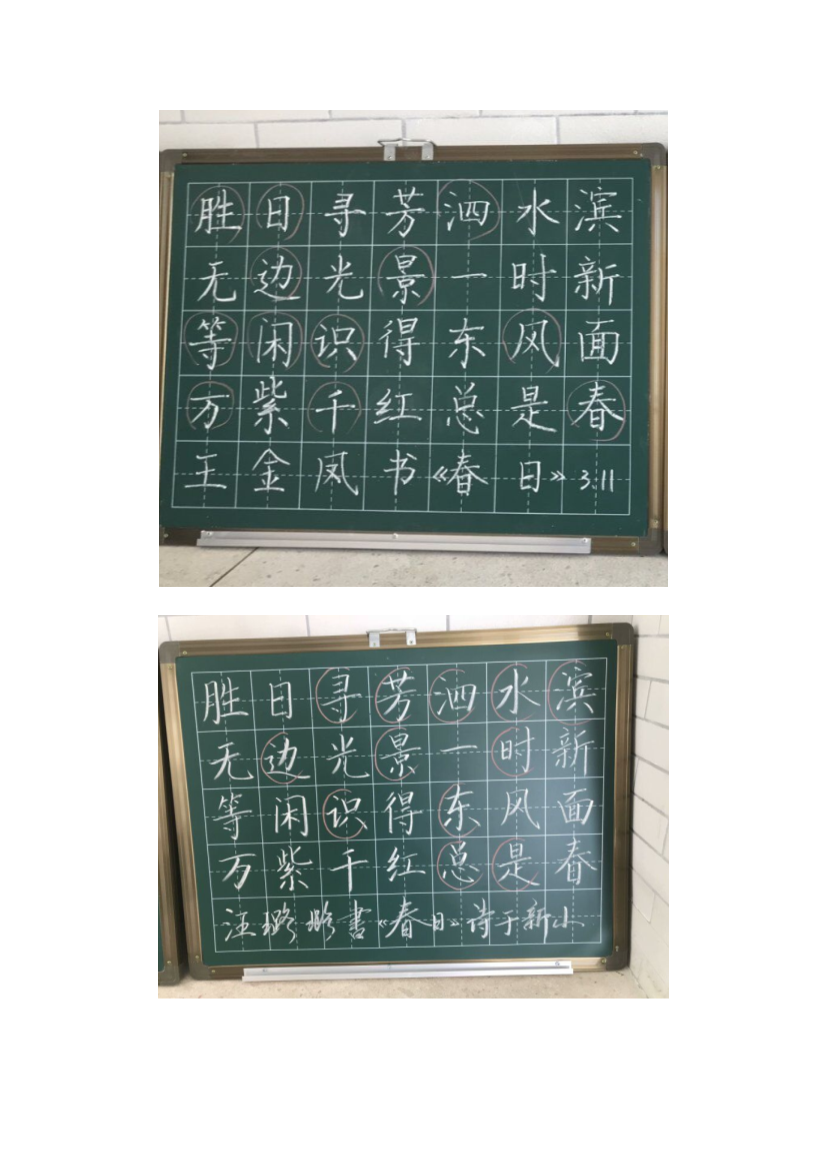 胜日寻芳泗水滨
无边光景一时新
等闲识得东风面
万紫千红总是春
王金凤书《春日》3.11
胜日寻芳泗水滨
无边光景一时新
等闲识得东风面
万紫千红总是春
汪璐 書《春日》诗于新小